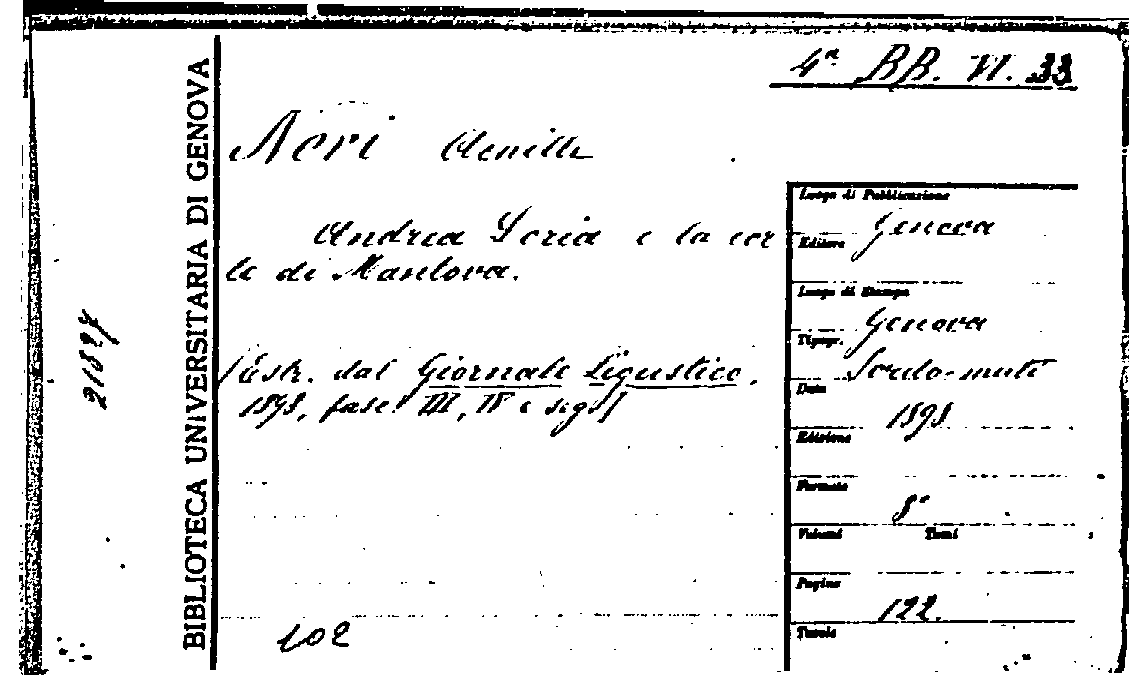 4ª BB. VI. 33
BIBLIOTECA UNIVERSITARIA DI GENOVA
21827
Neri Achille
Andrea Doria e la cor
te di Mantova.
[Estr. dal Giornale Ligustico,
1898, fasc. III, IV e seg.]
102
Luogo di Pubblicazione
Genova
Editore
Luogo di Stampa
Genova
Tipogr.
Sordo-muti
Data
1898
Edizione
Formato
8°
Volumi Tomi
Pagine
122.
Tavole